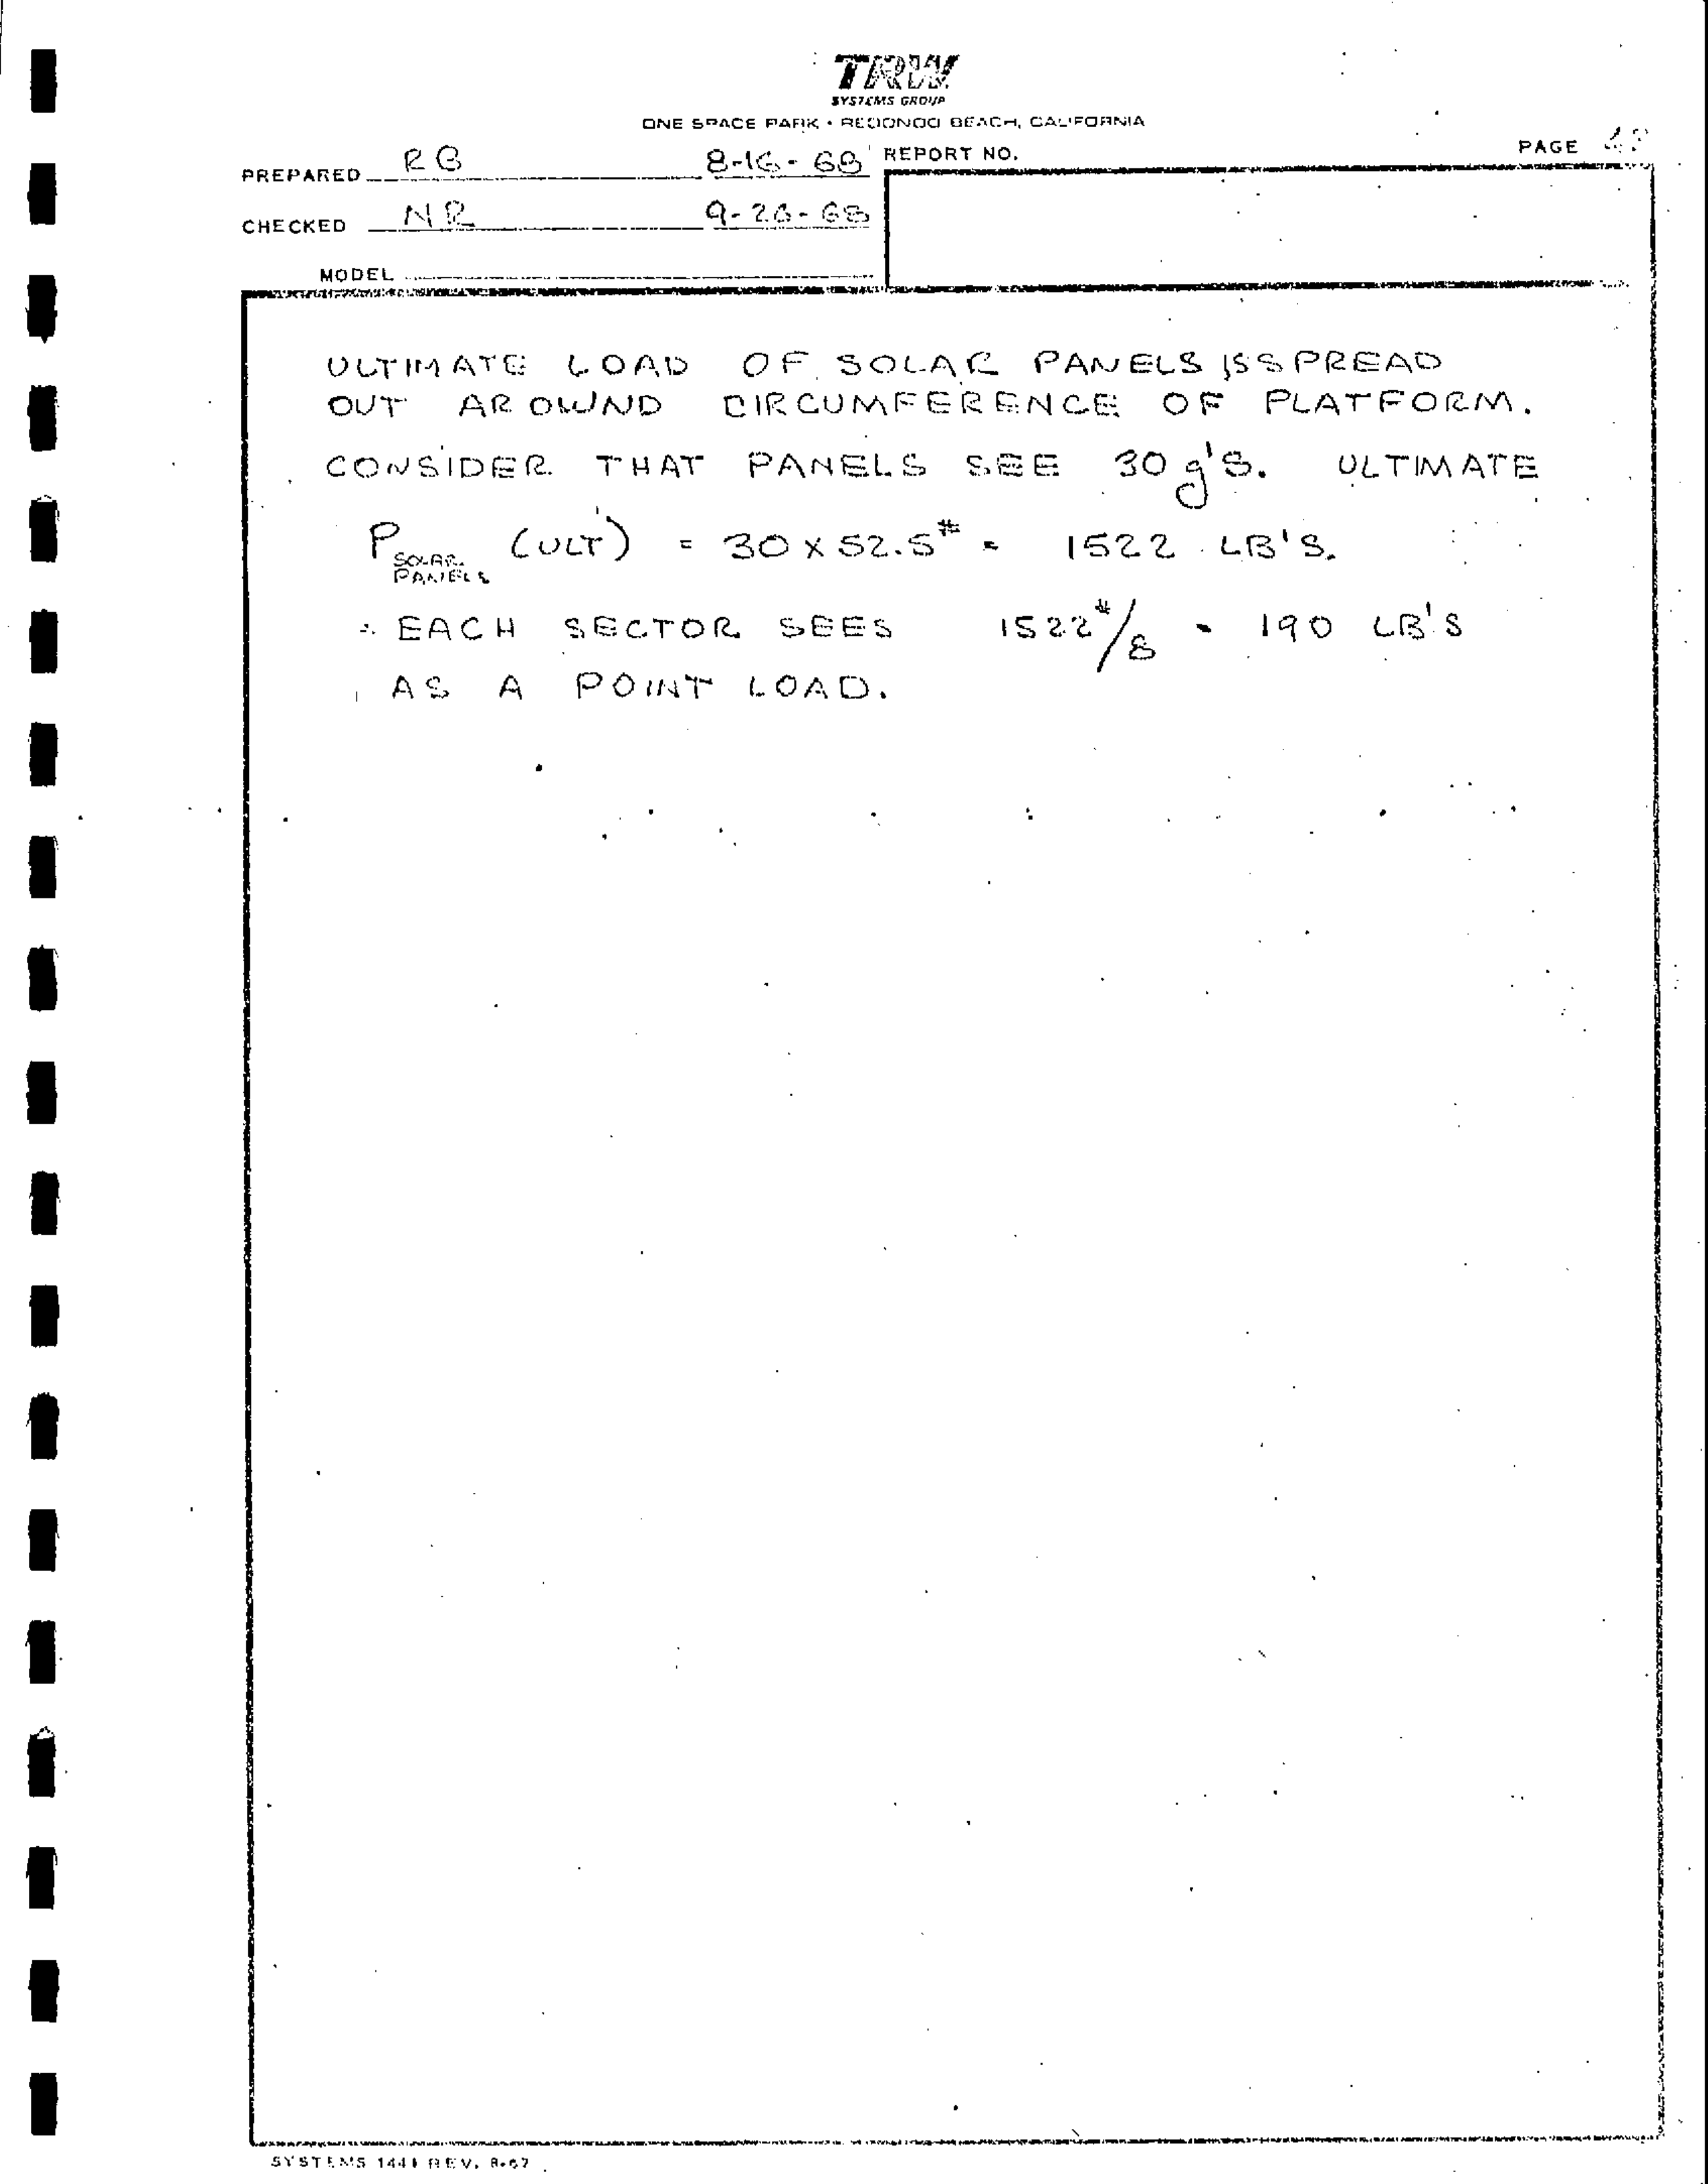 TRW
SYSTEMS GROUP
ONE SPACE PARK • REDONDO BEACH, CALIFORNIA
PREPARED RB 8-16-68 REPORT NO. PAGE
CHECKED NR 9-26-68
MODEL
ULTIMATE LOAD OF SOLAR PANELS IS SPREAD
OUT AROUND CIRCUMFERENCE OF PLATFORM.
CONSIDER THAT PANELS SEE 30 g'S. ULTIMATE
P SOLAR PANELS (ULT) = 30 x 52.5# = 1522 LB'S.
∴ EACH SECTOR SEES 1522#/8 = 190 LB'S
AS A POINT LOAD.
SYSTEMS 1441 REV. 8-67